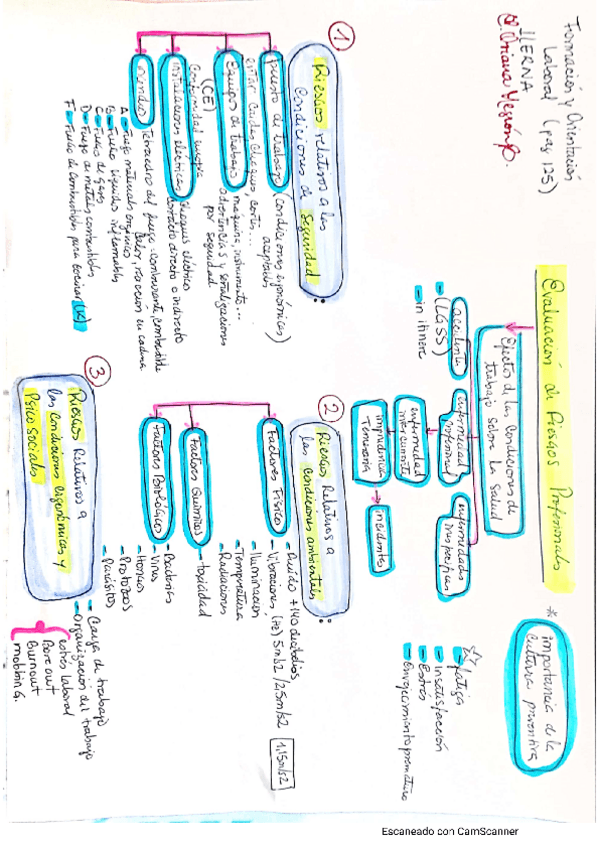 Formación y Orientación
Laboral (pag 125)
ILERNA
Evaluación de Riesgos Profesionales
* importancia de la
cultura preventiva
Efectos de las Condiciones de
trabajo sobre la salud
accidente
(LGSS)
in itinere
enfermedad
profesional
enfermedad
intercurrente
imprudencia
Temeraria
incidentes
enfermedades
inespecíficas
fatiga
Insatisfacción
Estrés
Envejecimiento prematuro
1
Riesgos relativos a las
Condiciones de Seguridad:
puesto de trabajo (condiciones ergonómicas)
evitar caídas, choques, cortes...
Equipos de trabajo máquina, instrumento...
advertencias y señalizaciones
por seguridad
(CE)
Conformidad europea
instalaciones eléctricas choques eléctricos
contacto directo o indirecto
incendio Tetraedro del fuego: comburente, combustible
calor, reacción en cadena
A Fuego materiales orgánicos
B Fuego líquidos inflamables
C Fuego de gases
D Fuego de metales combustibles
F Fuego de combustibles para cocinar (K)
2
Riesgos Relativos a
las condiciones ambientales:
Factores Físico
Ruido +140 decibelios
Vibraciones (Hz) 5m/s2 / 2,5m/s2
1,15m/s2
Iluminación
Temperatura
Radiaciones
Factores Químicos
toxicidad
Factores Biológicos
Bacterias
Virus
Hongos
Protozoos
Parásitos
3
Riesgos Relativos a
las condiciones ergonómicas y
Psicosociales
Carga de trabajo
Organización del trabajo
estrés laboral
Bore out
Burnout
mobbing.
Escaneado con CamScanner